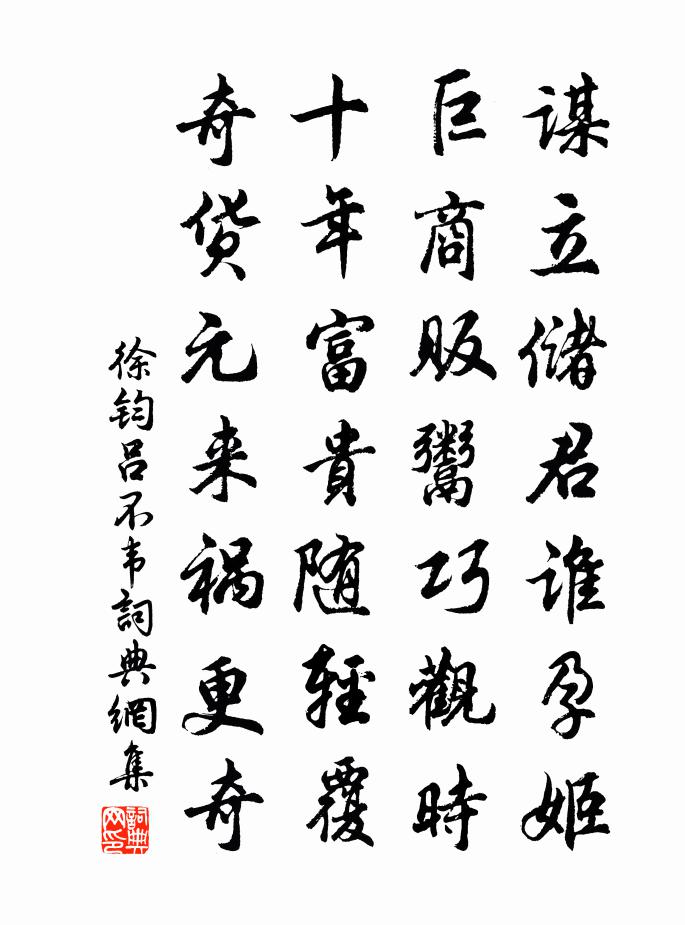 谋立储君谁孕姬
巨商贩鬻巧觀時
十年富貴随輕覆
奇货元来祸更奇
徐钧吕不韦詞典網集
詞典网印